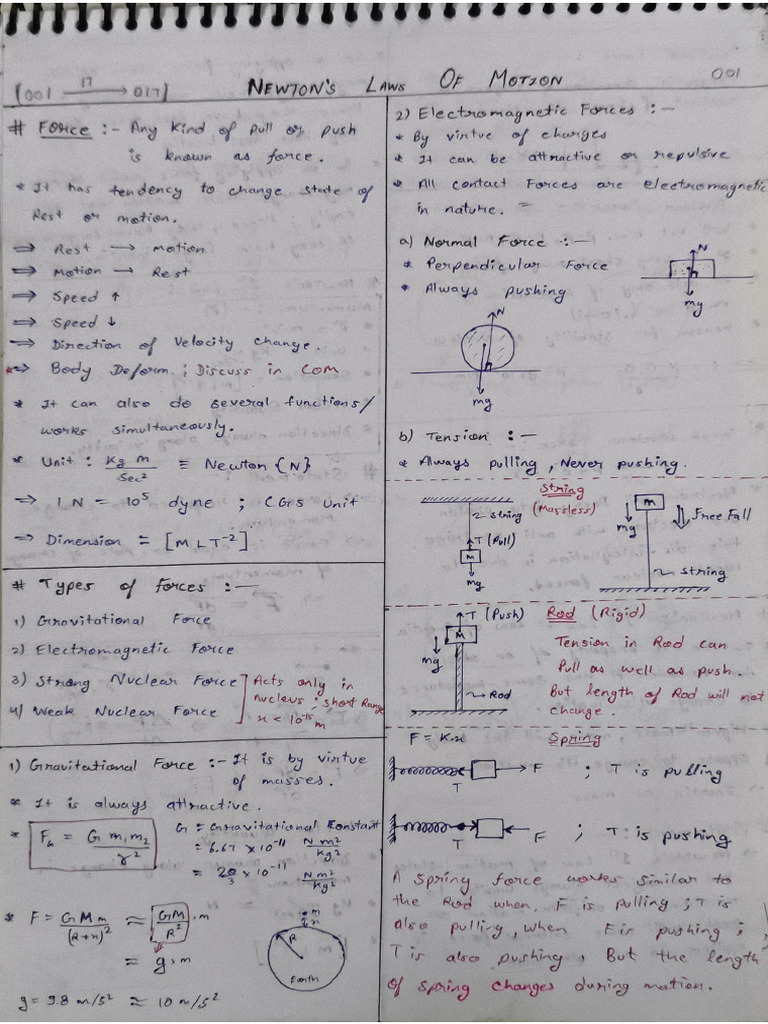 [001 17→ 017]
NEWTON'S LAWS OF MOTION
001
# Force :- Any kind of pull or push
is known as force.
* It has tendency to change state of
Rest or motion.
⇒ Rest → motion
⇒ Motion → Rest
⇒ Speed ↑
⇒ Speed ↓
⇒ Direction of Velocity change.
*⇒ Body Deform ; Discuss in COM
* It can also do several functions/
works simultaneously.
* Unit : Kg m / Sec² ≡ Newton {N}
⇒ 1 N = 10⁵ dyne ; CGS Unit
⇒ Dimension = [M L T⁻²]
# Types of Forces :—
1) Gravitational Force
2) Electromagnetic Force
3) Strong Nuclear Force
4) Weak Nuclear Force
Acts only in
nucleus ; short Range
x < 10⁻¹⁵ m
1) Gravitational Force :- It is by virtue
of masses.
* It is always attractive.
* F_G = G m₁ m₂ / r²
G = Gravitational Constant
= 6.67 × 10⁻¹¹ N m² / Kg²
= 20/3 × 10⁻¹¹ N m² / Kg²
* F = G M m / (R+x)² ≈ GM / R² . m
= g × m
m
x
R
Earth
g = 9.8 m/s² ≈ 10 m/s²
2) Electromagnetic Forces :—
* By virtue of charges
* It can be attractive or repulsive
* All contact Forces are electromagnetic
in nature.
a) Normal Force :—
* Perpendicular Force
* Always pushing
N
mg
N
mg
b) Tension :—
* Always pulling, Never pushing.
String
(Massless)
String
T (Pull)
M
mg
M
mg
Free Fall
String
T (Push)
M
mg
Rod
Rod (Rigid)
Tension in Rod can
Pull as well as push.
But length of Rod will not
change.
F = K.x
Spring
T
F ; T is pulling
T
F ; T is pushing
A Spring force works similar to
the Rod when, F is pulling ; T is
also pulling, when F is pushing ;
T is also pushing, But the length
of spring changes during motion.